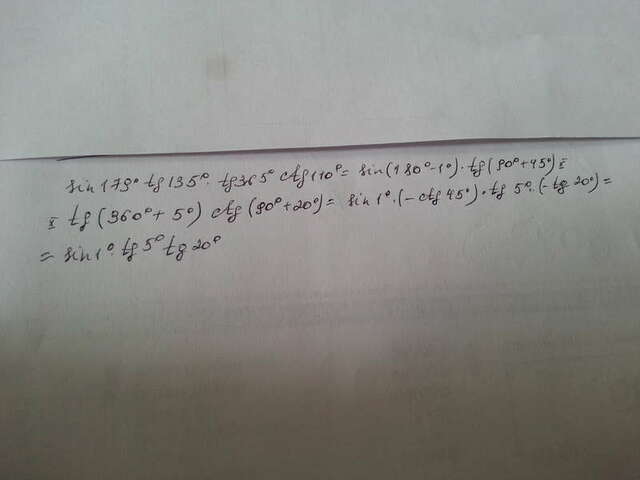 sin 179° tg 135°. tg 365° ctg 110° = sin(180°-1°)·tg(90°+45°) x
x tg (360°+5°) ctg (90°+20°) = sin 1°·(-ctg 45°)·tg 5°·(-tg 20°) =
= sin 1°·tg 5° tg 20°